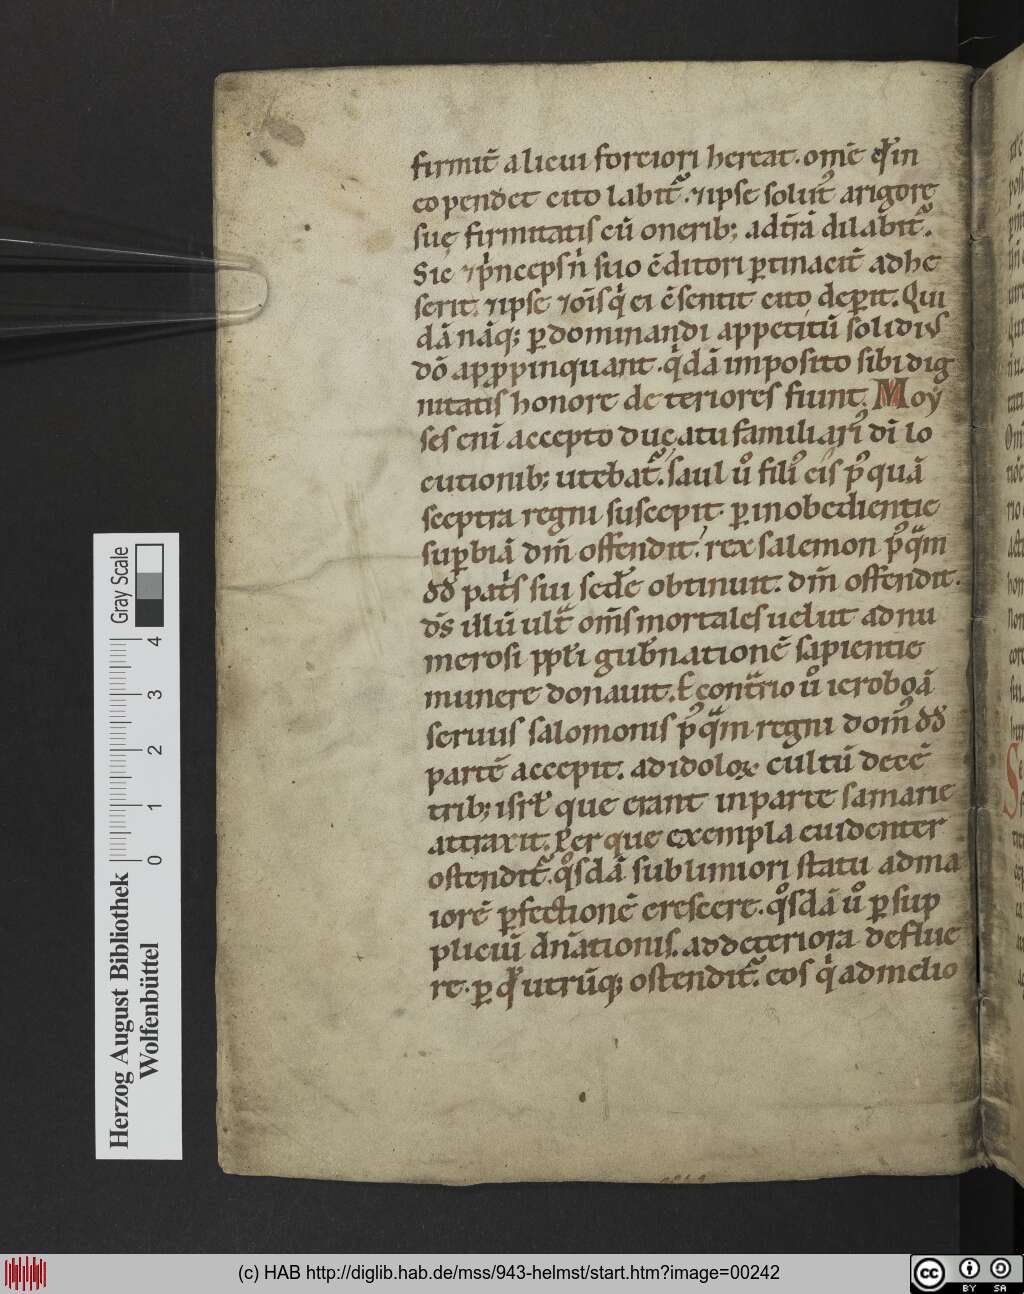 firmit̄ alicui forciori hereat. om̄e qd̓ in
eo pendet cito labit᷑. ⁊ ipse soluit᷑ a rigore
sue firmitatis cū onerib; ad t̄rā dilabit᷑.
Sic ⁊ p̓nceps n̓ suo c̄ditori ꝑtinacit̄ adhe
serit. ⁊ ipse ⁊ oīs q̓ ei c̄sentit cito deꝑit. Qui
dā nāq; ꝑ dominandi appetitū solidiꝰ
dō appropinquant. q̓dā imposito sibi dig
nitatis honore deteriores fiunt. Moy
ses enī accepto ducatu familiarib dī lo
cutionib; utebat᷑. Saul u̓o filiꝰ cis pꝰquā
sceptra regni suscepit ꝑ inobedientie
suꝑbiā dn̄m offendit. rex salemon pꝰq̄m
dd̓ pat̓s sui sedē obtinuit. dn̄m offendit.
d̄s illū ult᷑ om̄s mortales uelut ad nu
merosi ppl̓i gub̓nationē sapientie
munere donauit. E cont᷑rio u̓o ieroboā
seruus salomonis pꝰq̄m regni domꝰ dd̓
partē accepit. ad idoloꝝ cultū decē
trib; isrl̓ que erant in parte samarie
attraxit. Per que exempla euidenter
ostendit᷑. q̊sdā sublimiori statu ad ma
iorē ꝑfectionē crescere. q̊sdā u̓o ꝑ sup
pliciū dn̄ationis. ad deteriora deflue
re. ꝑ qd̓ utrūq; ostendit᷑. eos q̓ ad melio
Herzog August Bibliothek
Wolfenbüttel
0 1 2 3 4
Gray Scale
(c) HAB http://diglib.hab.de/mss/943-helmst/start.htm?image=00242
cc BY SA